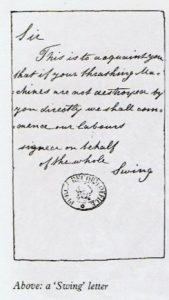 Sir
This is to acquaint you
that if your thrashing Ma-
chines are not destroyed by
you directly we shall com-
mence our labours
signed on behalf
of the whole
Swing
Above: a 'Swing' letter